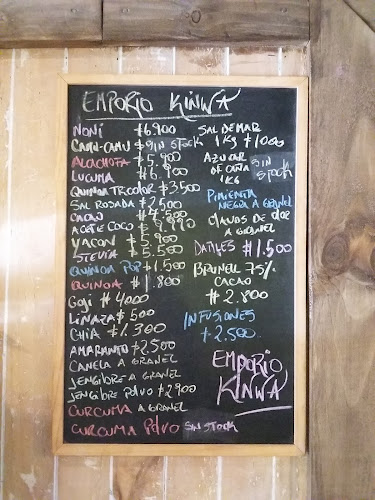 EMPORIO KINWA
NONI $6.900
CAMU-CAMU $ SIN STOCK
ALCACHOFA $5.900
LUCUMA $6.900
QUINOA TRICOLOR $3.500
SAL ROSADA $2.500
CACAO $4.500
ACEITE COCO $
YACON $5.900
STEVIA $5.500
QUINOA POP $1.500
QUINOA $1.800
GOJI $4000
LINAZA $500
CHIA $1.300
AMARANTO $2.500
CANELA A GRANEL
JENGIBRE A GRANEL
JENGIBRE POLVO $2.900
CURCUMA A GRANEL
CURCUMA POLVO SIN STOCK
SAL DE MAR
1 KG $1000
AZUCAR
DE CAÑA
1 KG
SIN
STOCK
PIMIENTA
NEGRA A GRANEL
CLAVOS DE OLOR
A GRANEL
DATILES $1.500
75%
CACAO
$2.800
INFUSIONES
$2.500
EMPORIO
KINWA